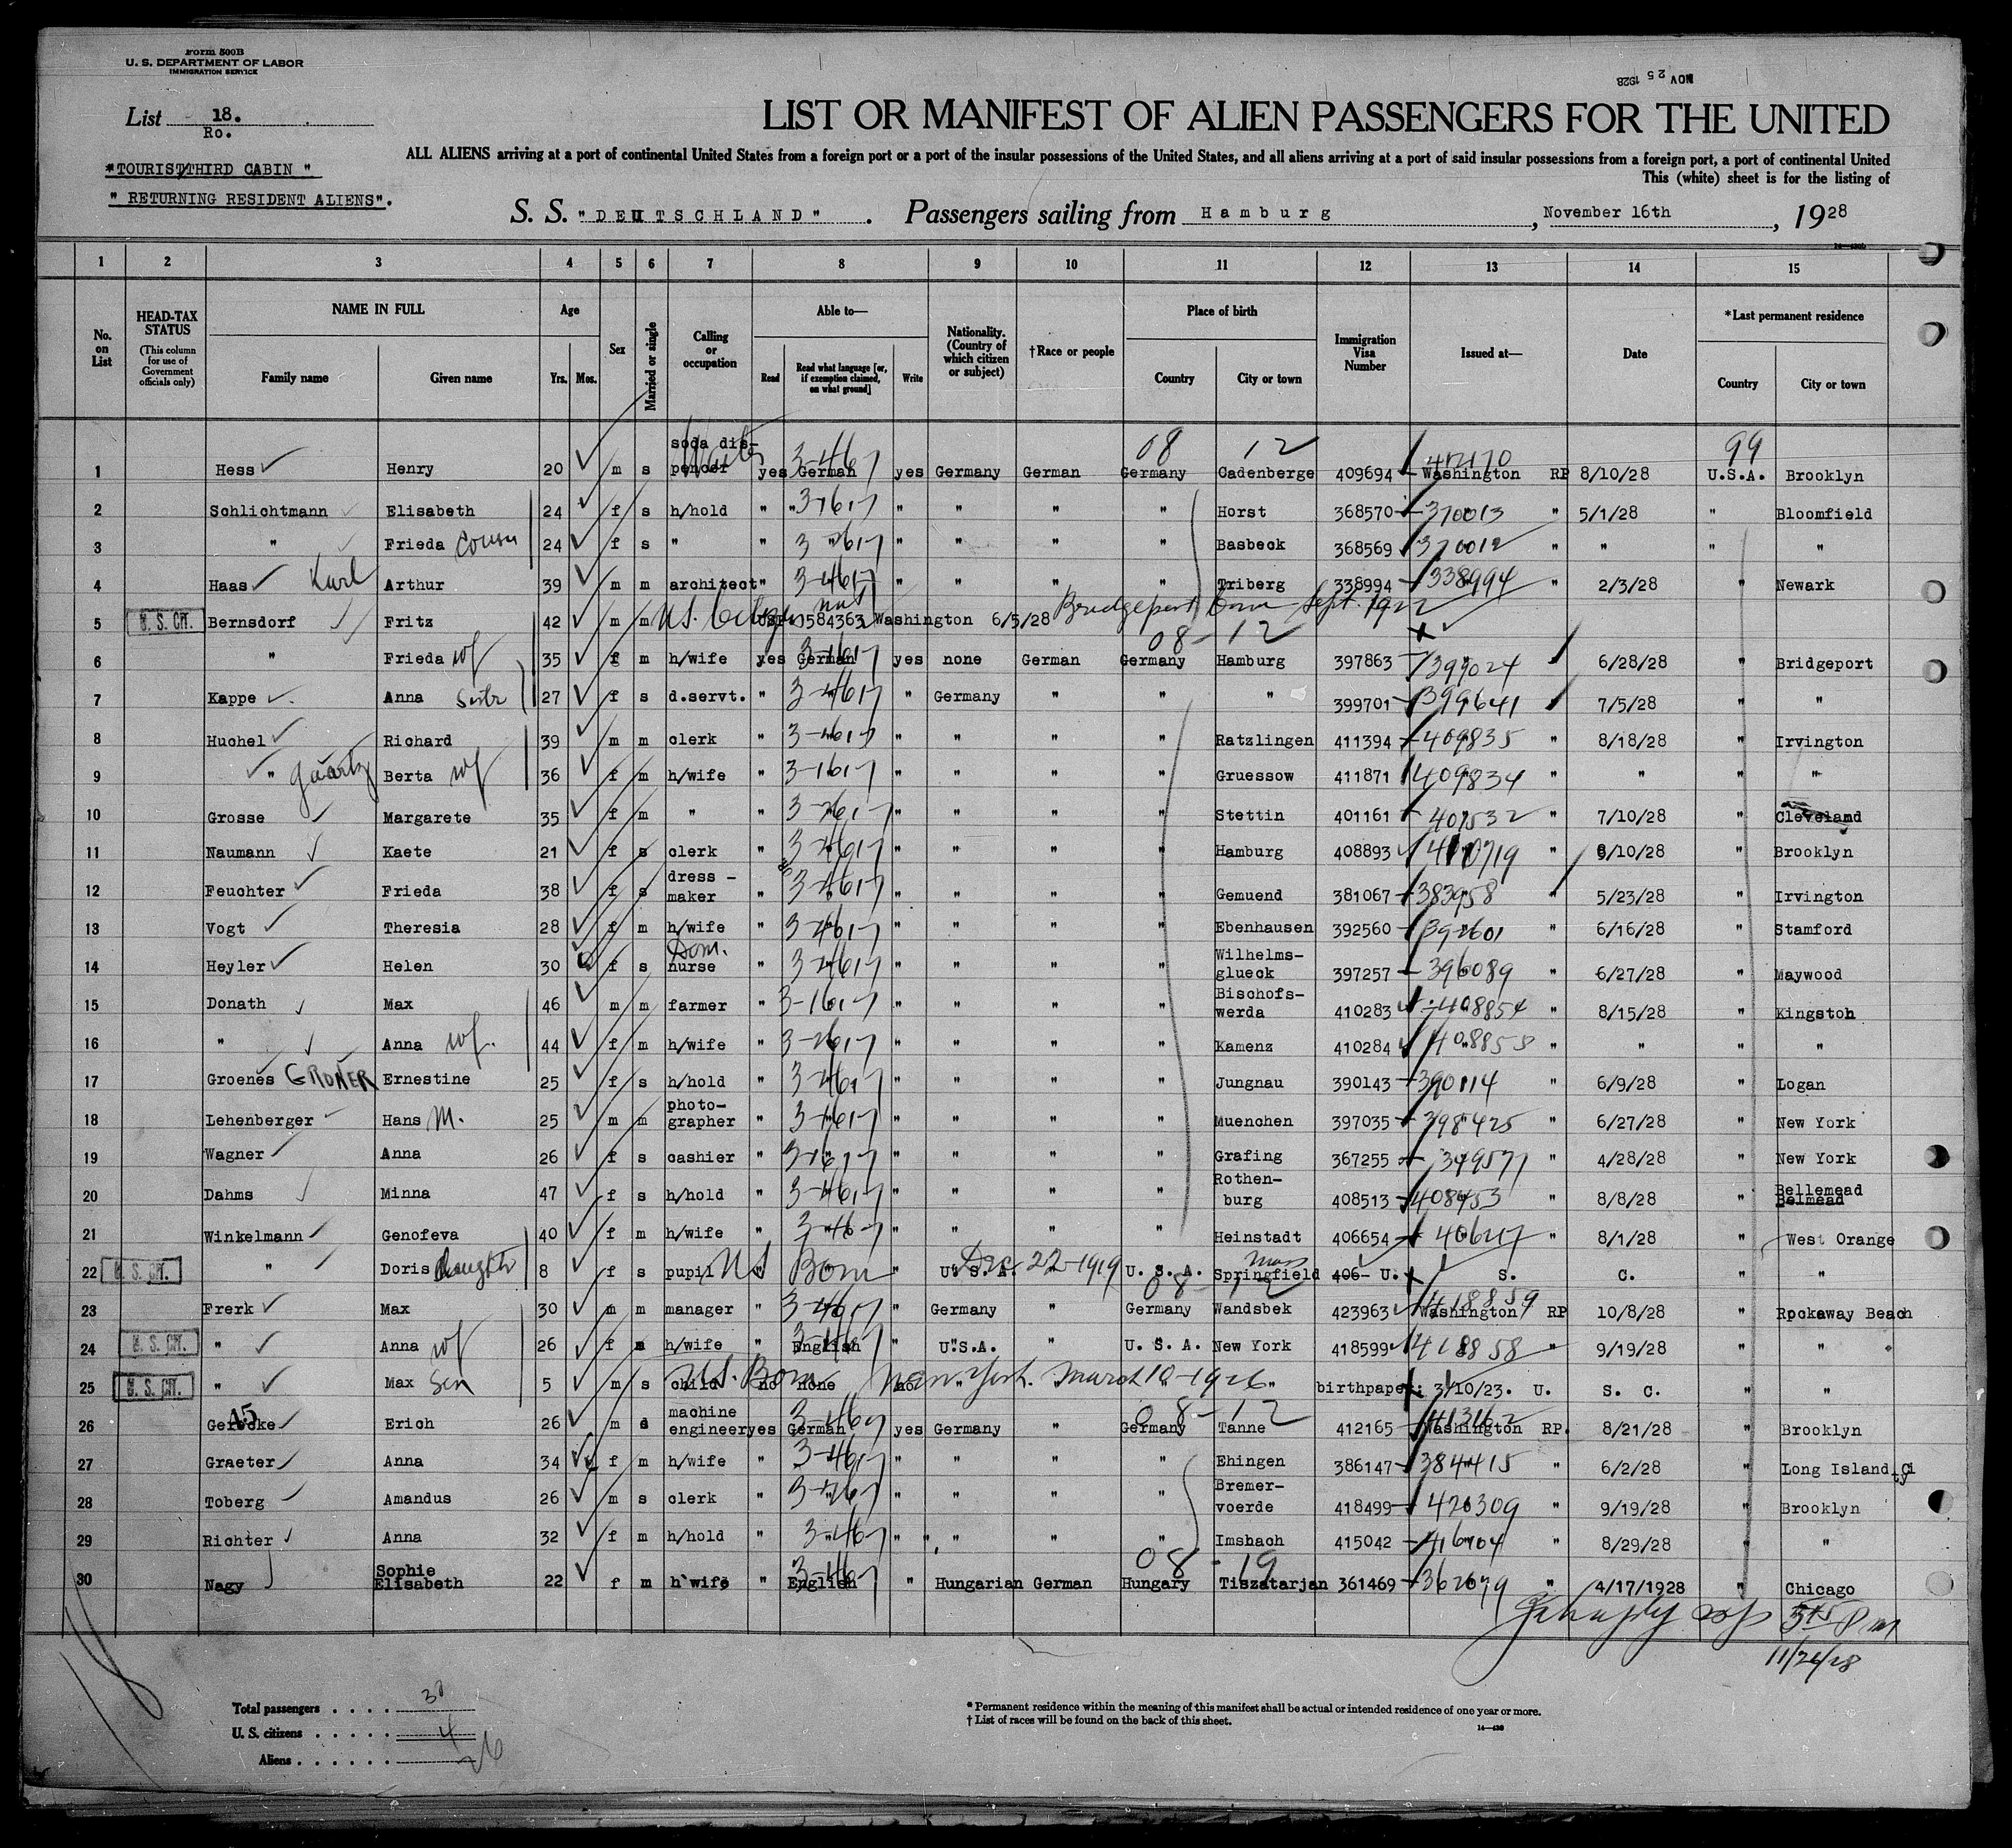 Form 500B
U. S. DEPARTMENT OF LABOR
IMMIGRATION SERVICE
NOV 25 1928
List 18.
Ro.
LIST OR MANIFEST OF ALIEN PASSENGERS FOR THE UNITED
ALL ALIENS arriving at a port of continental United States from a foreign port or a port of the insular possessions of the United States, and all aliens arriving at a port of said insular possessions from a foreign port, a port of continental United
This (white) sheet is for the listing of
"TOURIST/THIRD CABIN "
" RETURNING RESIDENT ALIENS".
S. S. "DEUTSCHLAND" . Passengers sailing from Hamburg, November 16th, 1928
1 2 3 4 5 6 7 8 9 10 11 12 13 14 15
No. on List
HEAD-TAX STATUS
(This column for use of Government officials only)
NAME IN FULL
Family name Given name
Age
Yrs. Mos.
Sex
Married or single
Calling or occupation
Able to—
Read Read what language [or, if exemption claimed, on what ground] Write
Nationality. (Country of which citizen or subject)
†Race or people
Place of birth
Country City or town
Immigration Visa Number
Issued at—
Date
*Last permanent residence
Country City or town
08 12 99
1 Hess Henry 20 m s soda dispencer Waiter yes German yes Germany German Germany Cadenberge 409694 Washington RP 8/10/28 U.S.A. Brooklyn
2 Schlichtmann Elisabeth 24 f s h/hold " " " " " " Horst 368570 370013 " 5/1/28 " Bloomfield
3 " Frieda cousin 24 f s " " " " " " " Basbeck 368569 370012 " " " "
4 Haas Karl Arthur 39 m m architect " " " " " " Triberg 338994 338994 " 2/3/28 " Newark
5 U. S. CIT. Bernsdorf Fritz 42 m m U.S. Citizen nat 584363 Washington 6/5/28 Bridgeport Conn Sept. 1922
08-12
6 " Frieda wf 35 f m h/wife yes German yes none German Germany Hamburg 397863 399024 6/28/28 " Bridgeport
7 Kappe Anna Sister 27 f s d.servt. " " " Germany " " " 399701 399641 7/5/28 " "
8 Huchel Richard 39 m m clerk " " " " " " Ratzlingen 411394 409835 " 8/18/28 " Irvington
9 " Berta wf 36 f m h/wife " " " " " " Gruessow 411871 409834 " " " "
10 Grosse Margarete 35 f m " " " " " " " Stettin 401161 " 7/10/28 " Cleveland
11 Naumann Kaete 21 f s clerk " " " " " " Hamburg 408893 410719 " 8/10/28 " Brooklyn
12 Feuchter Frieda 38 f s dress - maker " " " " " " Gemuend 381067 383958 " 5/23/28 " Irvington
13 Vogt Theresia 28 f m h/wife " " " " " " Ebenhausen 392560 392601 " 6/16/28 " Stamford
14 Heyler Helen 30 f s nurse Dom. " " " " " " Wilhelms- glueck 397257 396089 " 6/27/28 " Maywood
15 Donath Max 46 m m farmer " " " " " " Bischofs- werda 410283 408854 " 8/15/28 " Kingston
16 " Anna wf. 44 f m h/wife " " " " " " Kamenz 410284 408853 " " " "
17 Groenes GRONER Ernestine 25 f s h/hold " " " " " " Jungnau 390143 390114 " 6/9/28 " Logan
18 Lehenberger Hans M. 25 m m photo- grapher " " " " " " Muenchen 397035 398425 " 6/27/28 " New York
19 Wagner Anna 26 f s cashier " " " " " " Grafing 367255 349571 " 4/28/28 " New York
20 Dahms Minna 47 f s h/hold " " " " " " Rothen- burg 408513 408453 " 8/8/28 " Bellemead Belmead
21 Winkelmann Genofeva 40 f m h/wife " " " " " " Heinstadt 406654 " 8/1/28 " West Orange
22 U. S. CIT. " Doris daughter 8 f s pupil US Born Dec 22-1919 " U. S. A. " U. S. A. Springfield Mass 406- U. S. C. " "
08-12
23 Frerk Max 30 m m manager " " " Germany " Germany Wandsbek 423963 418859 Washington RP 10/8/28 " Rockaway Beach
24 U. S. CIT. " Anna wf 26 f m h/wife " English " U.S.A. " U. S. A. New York 418599 418858 " 9/19/28 " "
25 U. S. CIT. " Max Son 5 m s child U.S. Born no none no New York. March 10-1926 " " " " birthpaper: 3/10/23. U. S. C. " "
08-12
26 Gercke Erich 26 m s machine engineer yes German yes Germany " Germany Tanne 412165 Washington RP. 8/21/28 " Brooklyn
27 Graeter Anna 34 f m h/wife " " " " " " Ehingen 386147 384415 " 6/2/28 " Long Island City
28 Toberg Amandus 26 m s clerk " " " " " " Bremer- voerde 418499 420309 " 9/19/28 " Brooklyn
29 Richter Anna 32 f m h/hold " " " " " " Imsbach 415042 " 8/29/28 " "
08 - 19
30 Nagy Sophie Elisabeth 22 f m h'wife " English " Hungarian German Hungary Tiszatarjan 361469 " 4/17/1928 " Chicago
545 Pm
11/26/28
Total passengers . . . . 30
U. S. citizens . . . . . 4
Aliens . . . . . . 26
* Permanent residence within the meaning of this manifest shall be actual or intended residence of one year or more.
† List of races will be found on the back of this sheet.